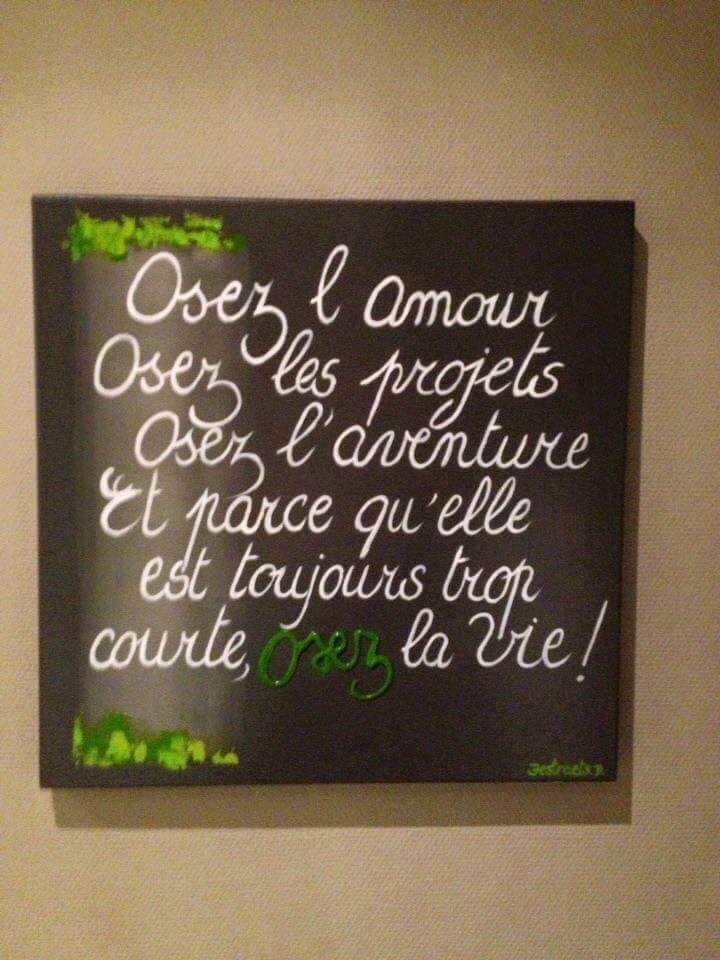 Osez l amour
Osez les projets
Osez l'aventure
Et parce qu'elle
est toujours trop
courte, osez la vie !